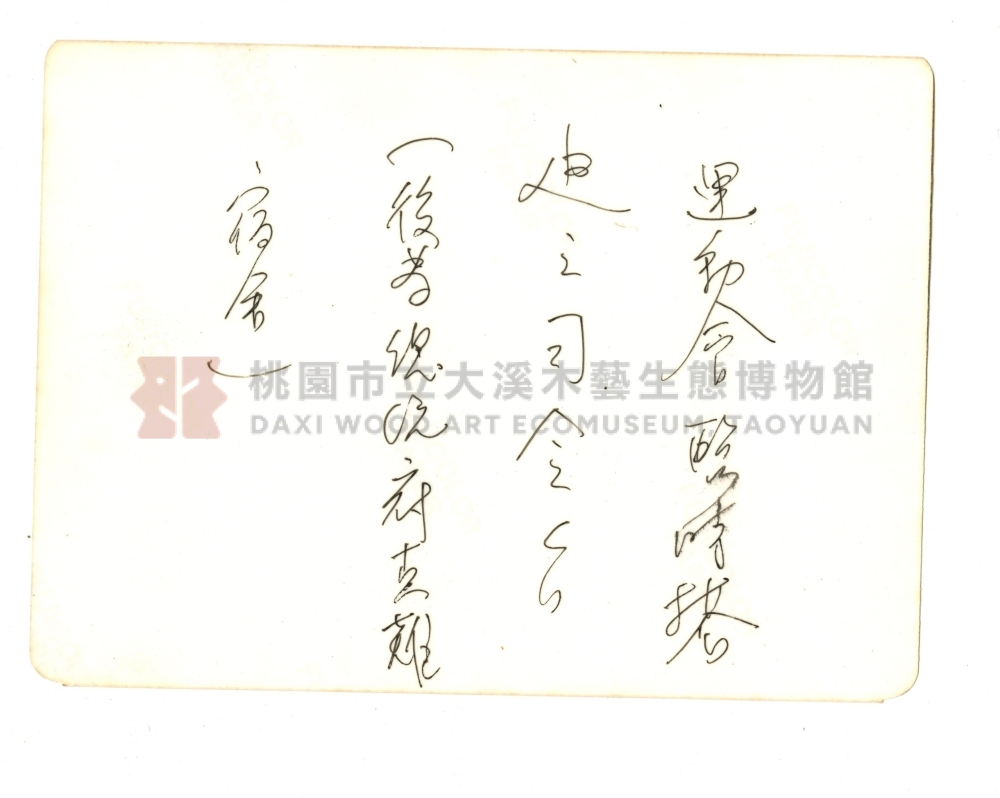 運動會臨時搭
建之司令台
(後為總統府克難
宿舍)
桃園市立大溪木藝生態博物館
DAXI WOOD ART ECOMUSEUM, TAOYUAN